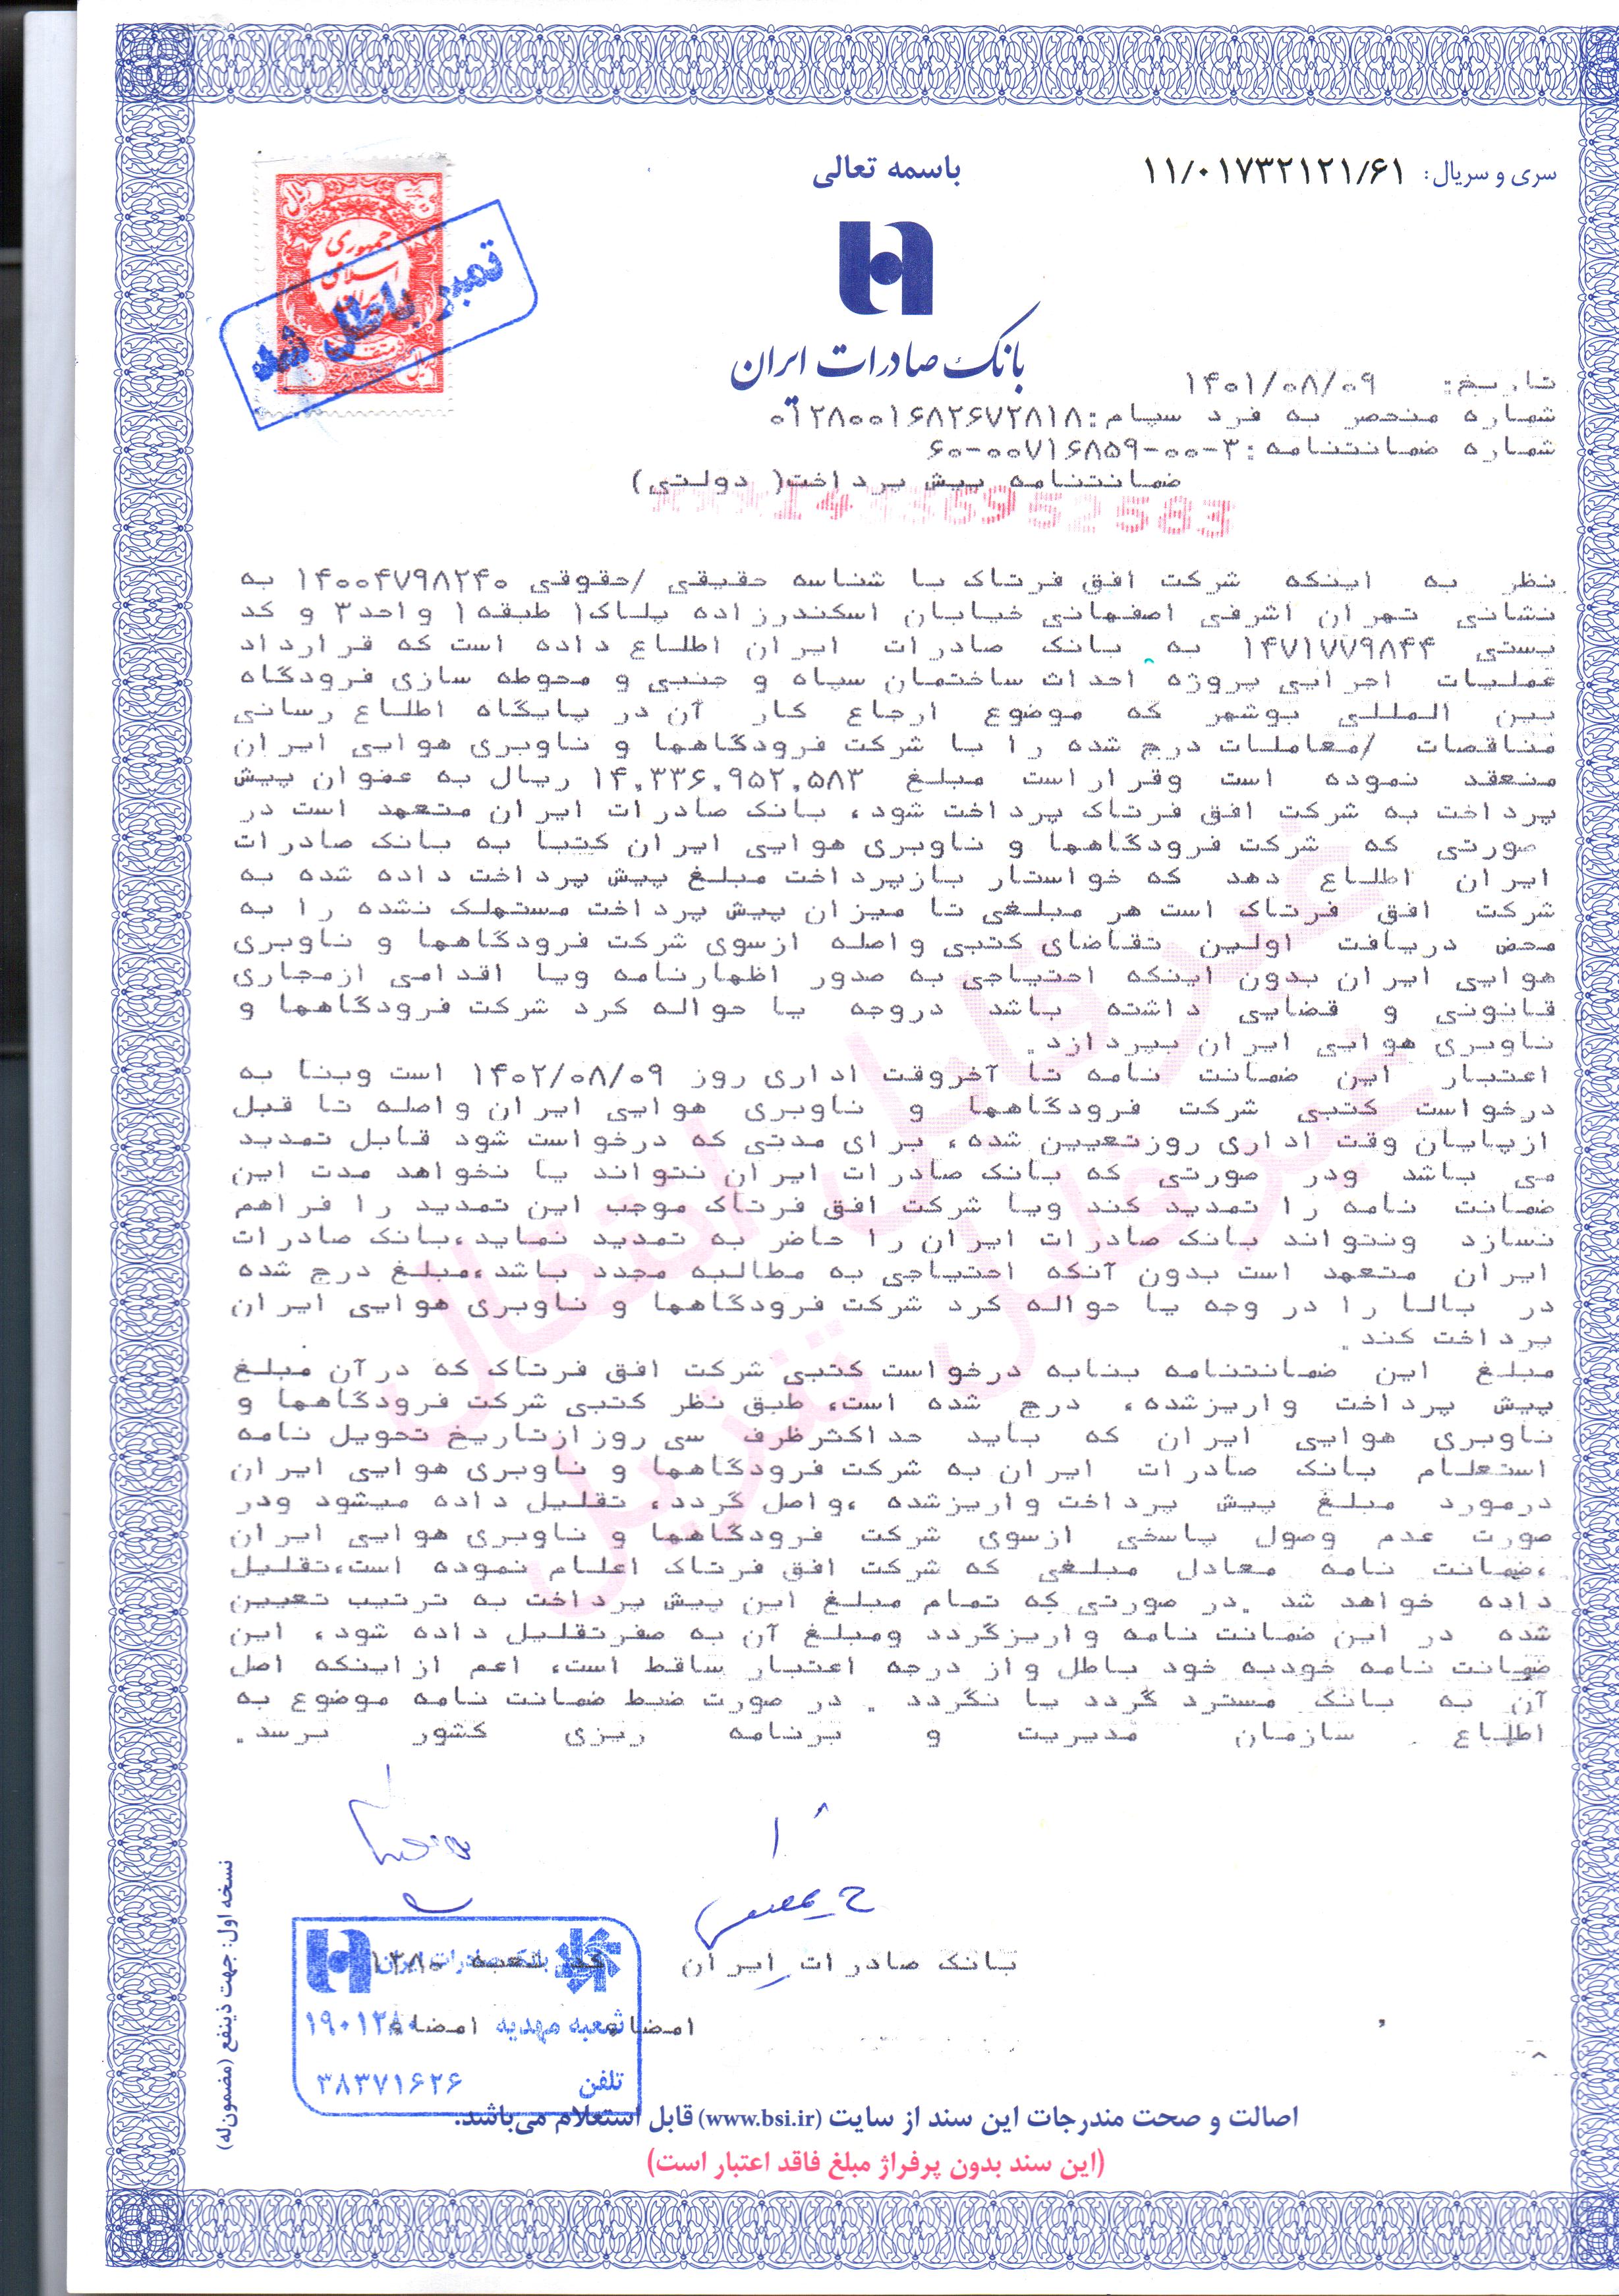 باسمه تعالی
سری و سریال: ۱۱/۰۱۷۳۲۱۲۱/۶۱
جمهوری
اسلامی
ایران
ریال
تمبر باطل شد
بانک صادرات ایران
تاریخ: ۱۴۰۱/۰۸/۰۹
شماره منحصر به فرد سپام:۰۱۲۸۰۰۱۶۸۲۶۷۲۸۱۸
شماره ضمانتنامه:۶۰-۰۰۷۱۶۸۵۹-۰۰-۳
ضمانتنامه پیش پرداخت( دولتی)
نظر به اینکه شرکت افق فرتاک با شناسه حقیقی /حقوقی ۱۴۰۰۴۷۹۸۲۴۰ به
نشانی تهران اشرفی اصفهانی خیابان اسکندرزاده پلاک۱ طبقه۱ واحد۳ و کد
پستی ۱۴۷۱۷۷۹۸۴۴ به بانک صادرات ایران اطلاع داده است که قرارداد
عملیات اجرایی پروژه احداث ساختمان سپاه و جنبی و محوطه سازی فرودگاه
بین المللی بوشهر که موضوع ارجاع کار آن در پایگاه اطلاع رسانی
مناقصات /معاملات درج شده را با شرکت فرودگاهها و ناوبری هوایی ایران
منعقد نموده است وقراراست مبلغ ۱۴,۳۳۶,۹۵۲,۵۸۳ ریال به عنوان پیش
پرداخت به شرکت افق فرتاک پرداخت شود، بانک صادرات ایران متعهد است در
صورتی که شرکت فرودگاهها و ناوبری هوایی ایران کتبا به بانک صادرات
ایران اطلاع دهد که خواستار بازپرداخت مبلغ پیش پرداخت داده شده به
شرکت افق فرتاک است هر مبلغی تا میزان پیش پرداخت مستهلک نشده را به
محض دریافت اولین تقاضای کتبی واصله ازسوی شرکت فرودگاهها و ناوبری
هوایی ایران بدون اینکه احتیاجی به صدور اظهارنامه ویا اقدامی ازمجاری
قانونی و قضایی داشته باشد دروجه یا حواله کرد شرکت فرودگاهها و
ناوبری هوایی ایران بپردازد.
اعتبار این ضمانت نامه تا آخروقت اداری روز ۱۴۰۲/۰۸/۰۹ است وبنا به
درخواست کتبی شرکت فرودگاهها و ناوبری هوایی ایران واصله تا قبل
ازپایان وقت اداری روزتعیین شده، برای مدتی که درخواست شود قابل تمدید
می باشد ودر صورتی که بانک صادرات ایران نتواند یا نخواهد مدت این
ضمانت نامه را تمدید کند ویا شرکت افق فرتاک موجب این تمدید را فراهم
نسازد ونتواند بانک صادرات ایران را حاضر به تمدید نماید،بانک صادرات
ایران متعهد است بدون آنکه احتیاجی به مطالبه مجدد باشد،مبلغ درج شده
در بالا را در وجه یا حواله کرد شرکت فرودگاهها و ناوبری هوایی ایران
پرداخت کند.
مبلغ این ضمانتنامه بنابه درخواست کتبی شرکت افق فرتاک که درآن مبلغ
پیش پرداخت واریزشده، درج شده است، طبق نظر کتبی شرکت فرودگاهها و
ناوبری هوایی ایران که باید حداکثرظرف سی روزازتاریخ تحویل نامه
استعلام بانک صادرات ایران به شرکت فرودگاهها و ناوبری هوایی ایران
درمورد مبلغ پیش پرداخت واریزشده ،واصل گردد، تقلیل داده میشود ودر
صورت عدم وصول پاسخی ازسوی شرکت فرودگاهها و ناوبری هوایی ایران
،ضمانت نامه معادل مبلغی که شرکت افق فرتاک اعلام نموده است،تقلیل
داده خواهد شد .در صورتی که تمام مبلغ این پیش پرداخت به ترتیب تعیین
شده در این ضمانت نامه واریزگردد ومبلغ آن به صفرتقلیل داده شود، این
ضمانت نامه خودبه خود باطل واز درجه اعتبار ساقط است، اعم ازاینکه اصل
آن به بانک مسترد گردد یا نگردد . در صورت ضبط ضمانت نامه موضوع به
اطلاع سازمان مدیریت و برنامه ریزی کشور برسد.
غیر قابل انتقال
غیر قابل تنزیل
بانک صادرات ایران کد شعبه ۱۲۸۰
امضاء امضاء
بانک صادرات ایران
شعبه مهدیه ۱۹۰۱۲۸۰
تلفن ۳۸۳۷۱۶۲۶
نسخه اول: جهت ذینفع (مضمون‌له)
اصالت و صحت مندرجات این سند از سایت (www.bsi.ir) قابل استعلام می‌باشد.
(این سند بدون پرفراژ مبلغ فاقد اعتبار است)